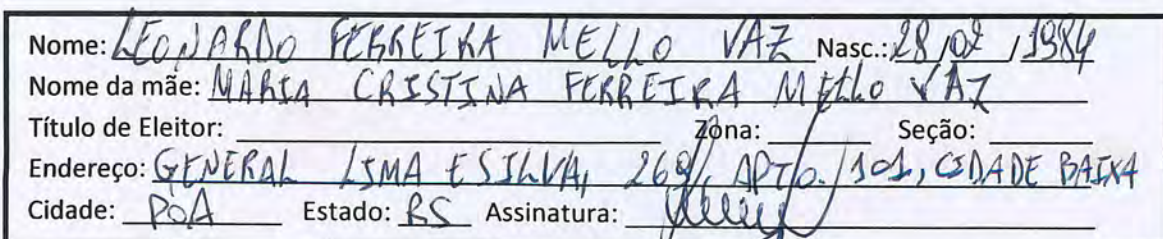 Nome: LEONARDO FERREIRA MELLO VAZ Nasc.: 28/02/1984
Nome da mãe: MARIA CRISTINA FERREIRA MELLO VAZ
Título de Eleitor: Zona: Seção:
Endereço: GENERAL LIMA E SILVA, 269, APTO. 101, CIDADE BAIXA
Cidade: POA Estado: RS Assinatura: